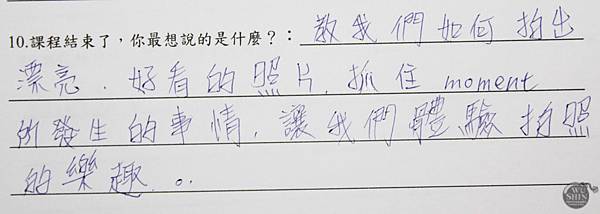 10.課程結束了，你最想說的是什麼？：教我們如何拍出
漂亮、好看的照片，抓住moment
所發生的事情，讓我們體驗拍照
的樂趣。
WU SHIN